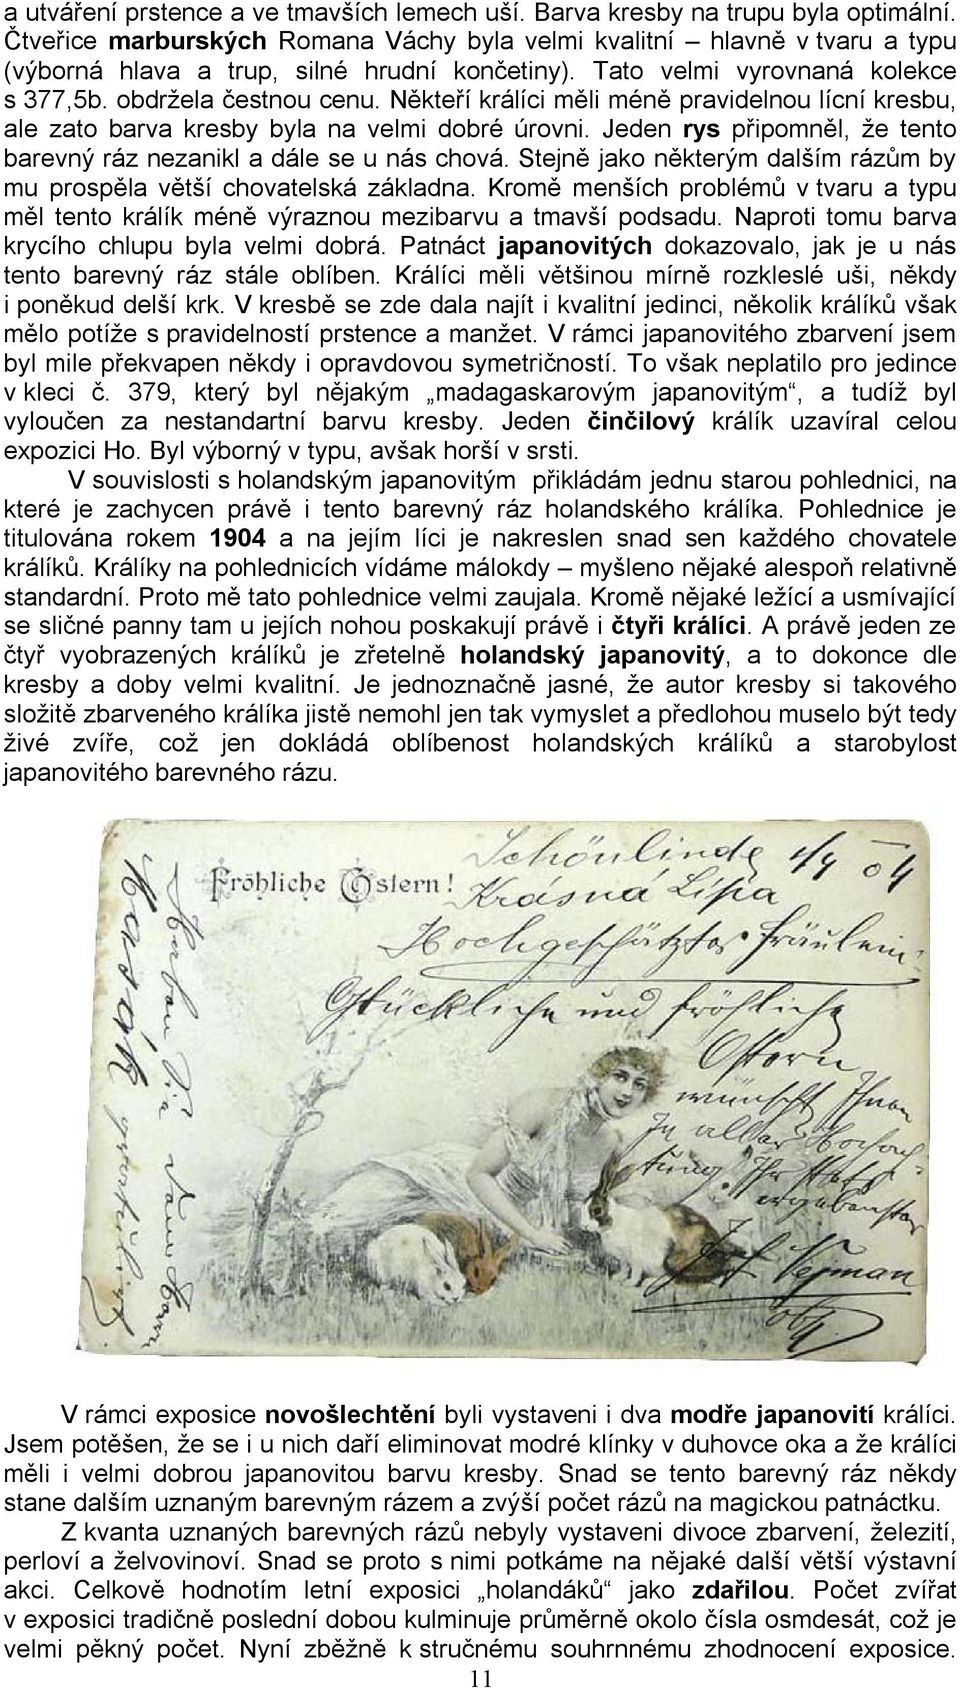 a utváření prstence a ve tmavších lemech uší. Barva kresby na trupu byla optimální.
Čtveřice marburských Romana Váchy byla velmi kvalitní – hlavně v tvaru a typu
(výborná hlava a trup, silné hrudní končetiny). Tato velmi vyrovnaná kolekce
s 377,5b. obdržela čestnou cenu. Někteří králíci měli méně pravidelnou lícní kresbu,
ale zato barva kresby byla na velmi dobré úrovni. Jeden rys připomněl, že tento
barevný ráz nezanikl a dále se u nás chová. Stejně jako některým dalším rázům by
mu prospěla větší chovatelská základna. Kromě menších problémů v tvaru a typu
měl tento králík méně výraznou mezibarvu a tmavší podsadu. Naproti tomu barva
krycího chlupu byla velmi dobrá. Patnáct japanovitých dokazovalo, jak je u nás
tento barevný ráz stále oblíben. Králíci měli většinou mírně rozkleslé uši, někdy
i poněkud delší krk. V kresbě se zde dala najít i kvalitní jedinci, několik králíků však
mělo potíže s pravidelností prstence a manžet. V rámci japanovitého zbarvení jsem
byl mile překvapen někdy i opravdovou symetričností. To však neplatilo pro jedince
v kleci č. 379, který byl nějakým „madagaskarovým japanovitým“, a tudíž byl
vyloučen za nestandartní barvu kresby. Jeden činčilový králík uzavíral celou
expozici Ho. Byl výborný v typu, avšak horší v srsti.
V souvislosti s holandským japanovitým přikládám jednu starou pohlednici, na
které je zachycen právě i tento barevný ráz holandského králíka. Pohlednice je
titulována rokem 1904 a na jejím líci je nakreslen snad sen každého chovatele
králíků. Králíky na pohlednicích vídáme málokdy – myšleno nějaké alespoň relativně
standardní. Proto mě tato pohlednice velmi zaujala. Kromě nějaké ležící a usmívající
se sličné panny tam u jejích nohou poskakují právě i čtyři králíci. A právě jeden ze
čtyř vyobrazených králíků je zřetelně holandský japanovitý, a to dokonce dle
kresby a doby velmi kvalitní. Je jednoznačně jasné, že autor kresby si takového
složitě zbarveného králíka jistě nemohl jen tak vymyslet a předlohou muselo být tedy
živé zvíře, což jen dokládá oblíbenost holandských králíků a starobylost
japanovitého barevného rázu.
Schönlinde 1/4 04
Fröhliche Ostern!
Krásná Lípa
Hochgeschätztes Fräulein
Glückliche und fröhliche
Ostern
wünscht Ihnen
In aller Hochach-
tung Ihr
Josef Nejman
V rámci exposice novošlechtění byli vystaveni i dva modře japanovití králíci.
Jsem potěšen, že se i u nich daří eliminovat modré klínky v duhovce oka a že králíci
měli i velmi dobrou japanovitou barvu kresby. Snad se tento barevný ráz někdy
stane dalším uznaným barevným rázem a zvýší počet rázů na magickou patnáctku.
Z kvanta uznaných barevných rázů nebyly vystaveni divoce zbarvení, železití,
perloví a želvovinoví. Snad se proto s nimi potkáme na nějaké další větší výstavní
akci. Celkově hodnotím letní exposici „holandáků“ jako zdařilou. Počet zvířat
v exposici tradičně poslední dobou kulminuje průměrně okolo čísla osmdesát, což je
velmi pěkný počet. Nyní zběžně k stručnému souhrnnému zhodnocení exposice.
11